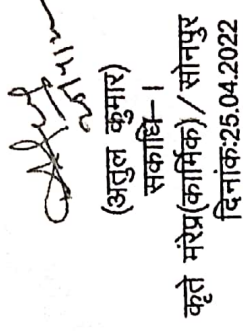 25/4/22
(अतुल कुमार)
सकाधि–।
कृते मंरेप्र(कार्मिक)/सोनपुर
दिनांक:25.04.2022